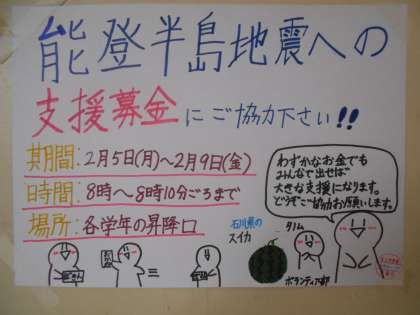 能登半島地震への
支援募金にご協力下さい!!
期間:2月5日(月)〜2月9日(金)
時間:8時〜8時10分ごろまで
場所:各学年の昇降口
わずかなお金でも
みんなで出せば
大きな支援になります。
どうぞご協力お願いします。
石川県の
スイカ
ボランティア部